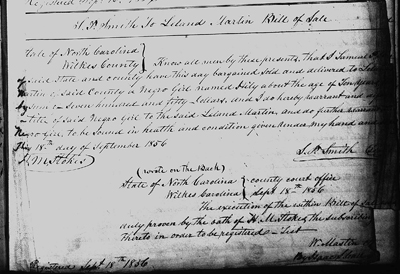 S. P. Smith To Leland Martin Bill of Sale
State of North Carolina
Wilkes County Know all men by these presents, that I Samuel
of said State and county have this day bargained Sold and delivered to
Martin of said County a Negro Girl named Hily about the age of Ten
Seven hundred and fifty Dollars, and I do hereby warrant
title of said Negro Girl to the said Leland Martin, and do further
Negro Girl, to be Sound in health and condition given under my hand and
This 18th day of September 1856
S. P. Smith
(wrote on the Back)
State of North Carolina county court office
Wilkes Carolina Sept 18th 1856
The execution of the within Bill of
duly proven by the oath of H. M. Stokes the subscribing
thereto in order to be registered - Test
W. Mastin
Registered Sept 18th 1856